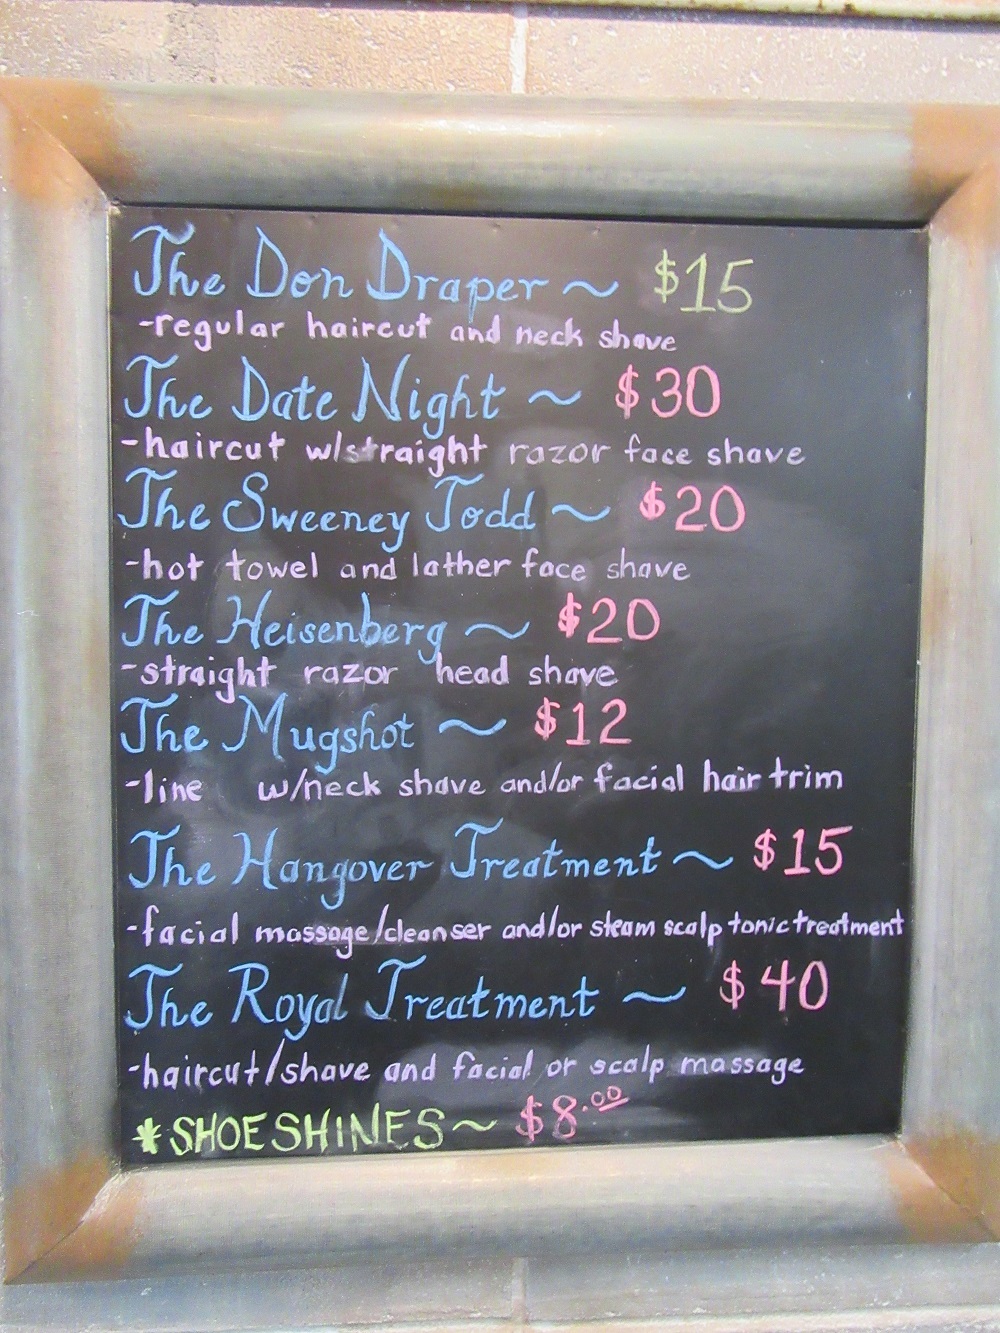 The Don Draper ~ $15
-regular haircut and neck shave
The Date Night ~ $30
-haircut w/straight razor face shave
The Sweeney Todd ~ $20
-hot towel and lather face shave
The Heisenberg ~ $20
-straight razor head shave
The Mugshot ~ $12
-line w/neck shave and/or facial hair trim
The Hangover Treatment ~ $15
-facial massage/cleanser and/or steam scalp tonic treatment
The Royal Treatment ~ $40
-haircut/shave and facial or scalp massage
*SHOESHINES~ $8.00